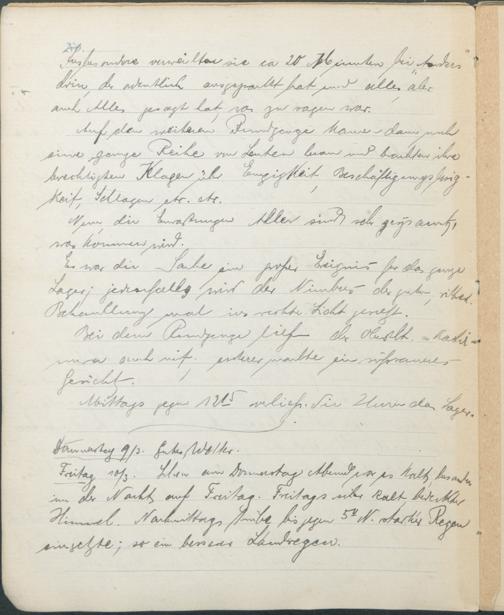 Insbesondere verweilten sie ca 20 Minuten bei "Anders"
drin, der ordentlich ausgepackt hat und alles, aber
auch Alles gesagt hat, was zu sagen war.
Auf dem weiteren Rundgange kamen dann noch
eine ganze Reihe von Leuten heran und brachten ihre
berechtigten Klagen über Engigkeit, Beschäftigungslosig-
keit, Schlagen etc. etc.
Nun die Erwartungen Aller sind sehr gespannt,
was kommen wird.
Es war die Sache ein großes Ereignis für das ganze
Lager; jedenfalls wird der Nimbus der guten, ritterl.
Behandlung mal ins rechte Licht gesetzt.
Bei dem Rundgange lief der
auch mit, ersterer machte ein
Gesicht.
Mittags gegen 12 15 verließen die Herren das Lager.
Donnerstag 9/3. Gutes Wetter.
Freitag 10/3. Schon am Donnerstag Abend war es kalt, besonders
in der Nacht auf Freitag. Freitags sehr kalt bedeckter
Himmel. Nachmittags trübe, bis gegen 5 N. starker Regen
einsetzte; so ein besserer Landregen.